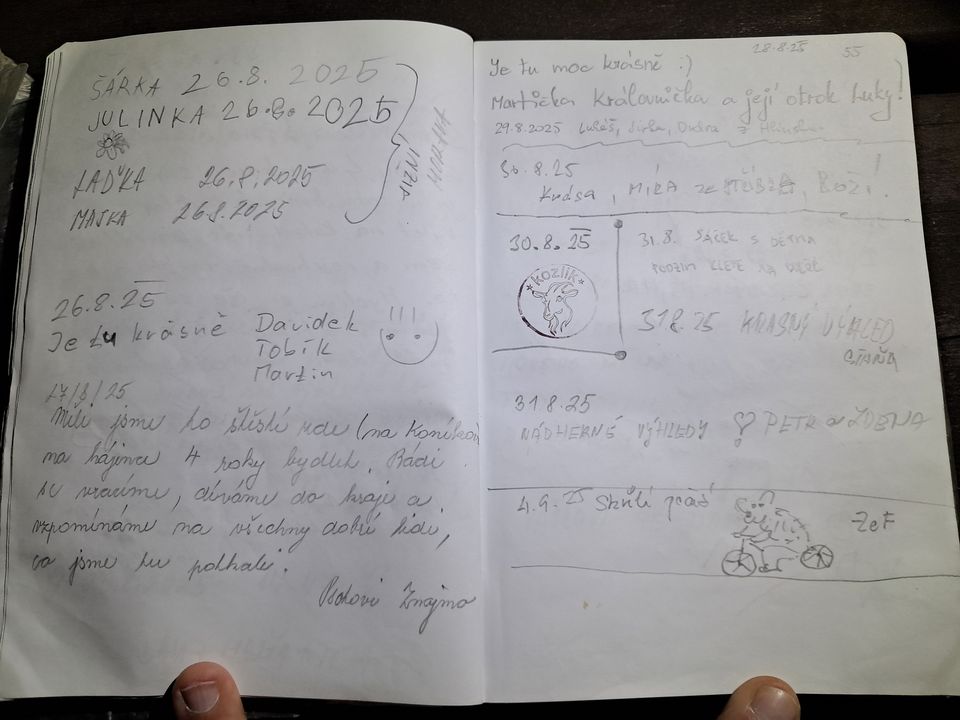 ŠÁRKA 26.8. 2025
JULINKA 26.8. 2025
LAĎKA 26.8.2025
MAJKA 26.8.2025
JIŽNÍ
MORAVA
26.8.25
Je tu krásně Davidek
Tobík
Martin
27/8/25
Měli jsme to štěstí zde (na Koníkov
na hájence 4 roky bydlet. Rádi
se vracíme, díváme do kraje a
vzpomínáme na všechny dobré lidi,
co jsme tu potkali.
Znojmo
28.8.25 55
Je tu moc krásně :)
Martička Královnička a její otrok Luky!
29.8.2025 Lukáš, Jirka,
30.8.25
Krása, MÍRA ZE STŘÍBRA, BOŽÍ!
30.8.25
kozlík
31.8. SÁČEK S DĚTMA
31.8.25 KRÁSNÝ VÝHLED
STÁŇA
31.8.25
NÁDHERNÉ VÝHLEDY PETR a ZDENA
4.9.25
ZeF